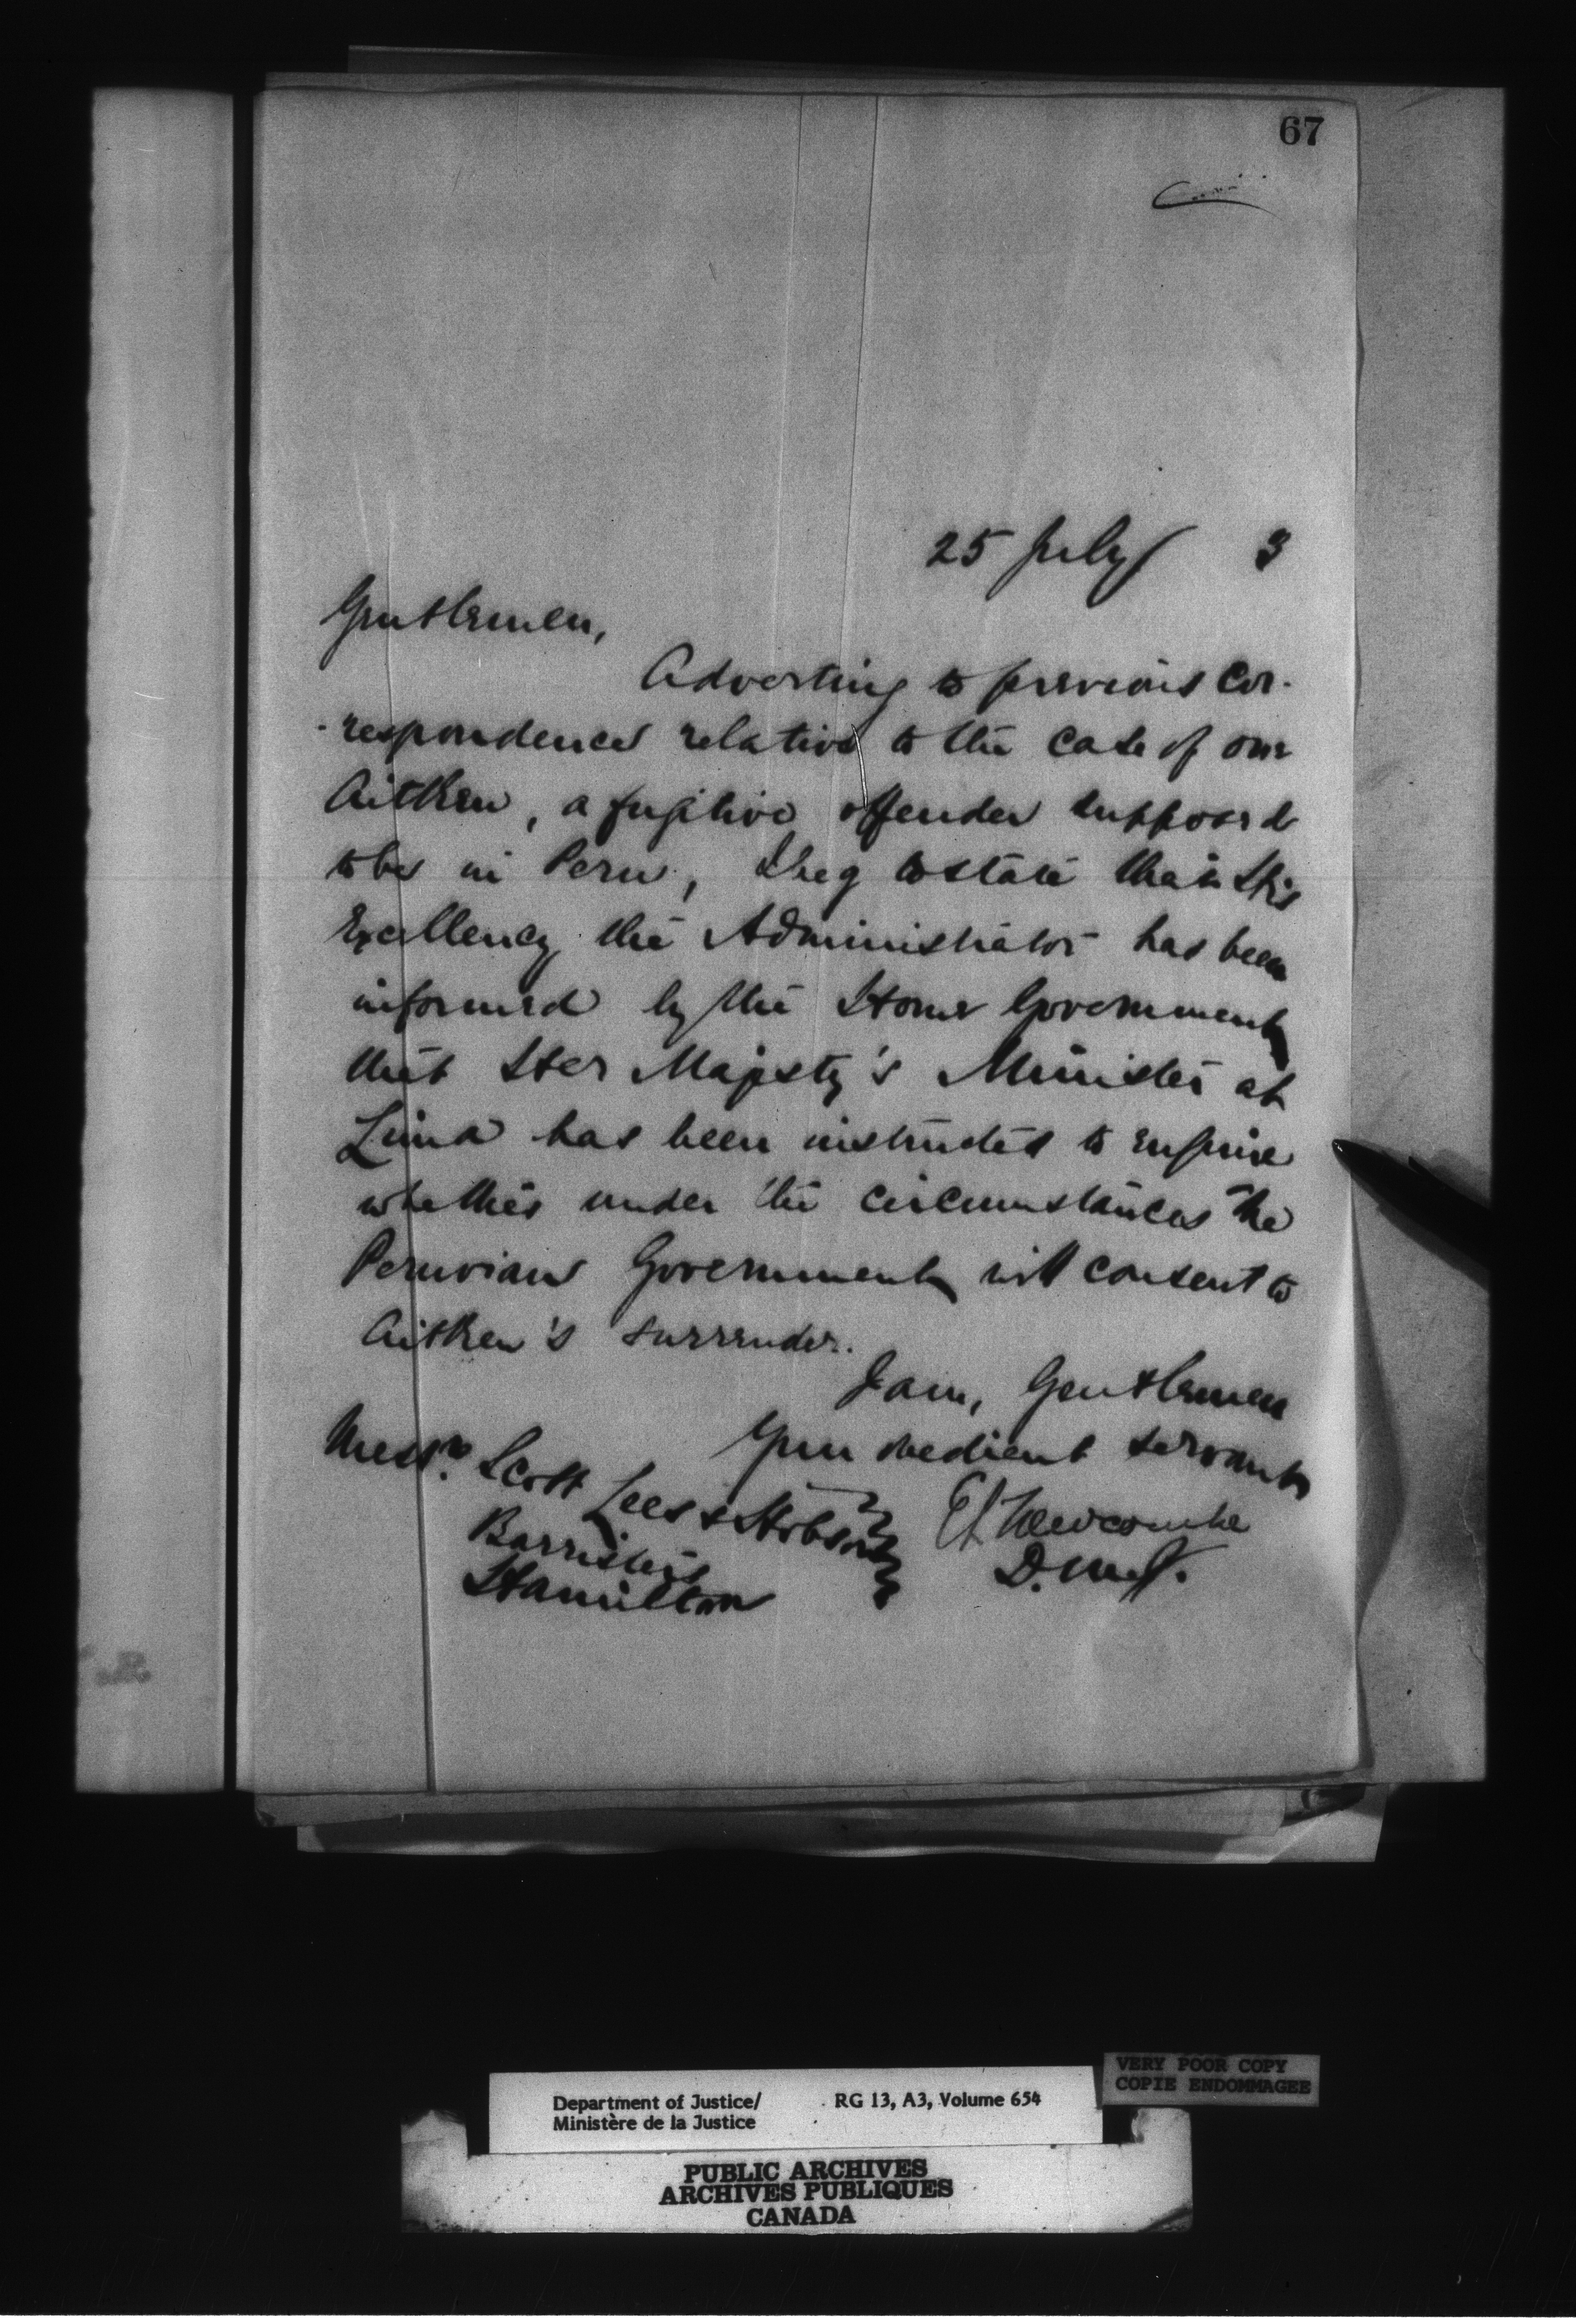 67
25 July 3
Gentlemen,
Adverting to previous cor-
respondence relative to the case of one
Aitken, a fugitive offender supposed
to be in Peru, I beg to state that His
Excellency the Administrator has been
informed by the Home Government
that Her Majesty's Minister at
Lima has been instructed to enquire
whether under the circumstances the
Peruvian Government will consent to
Aitken's surrender.
I am, Gentlemen
Your obedient servant
Messrs Scott Lees & Hobson
Barristers
Hamilton
E L Newcombe
D.M.J.
VERY POOR COPY
COPIE ENDOMMAGEE
Department of Justice/ RG 13, A3, Volume 654
Ministère de la Justice
PUBLIC ARCHIVES
ARCHIVES PUBLIQUES
CANADA